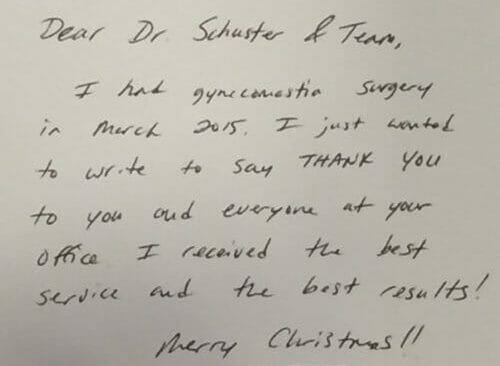 Dear Dr. Schuster & Team,
I had gynecomastia surgery
in March 2015. I just wanted
to write to say THANK YOU
to you and everyone at your
office I received the best
service and the best results!
Merry Christmas!!